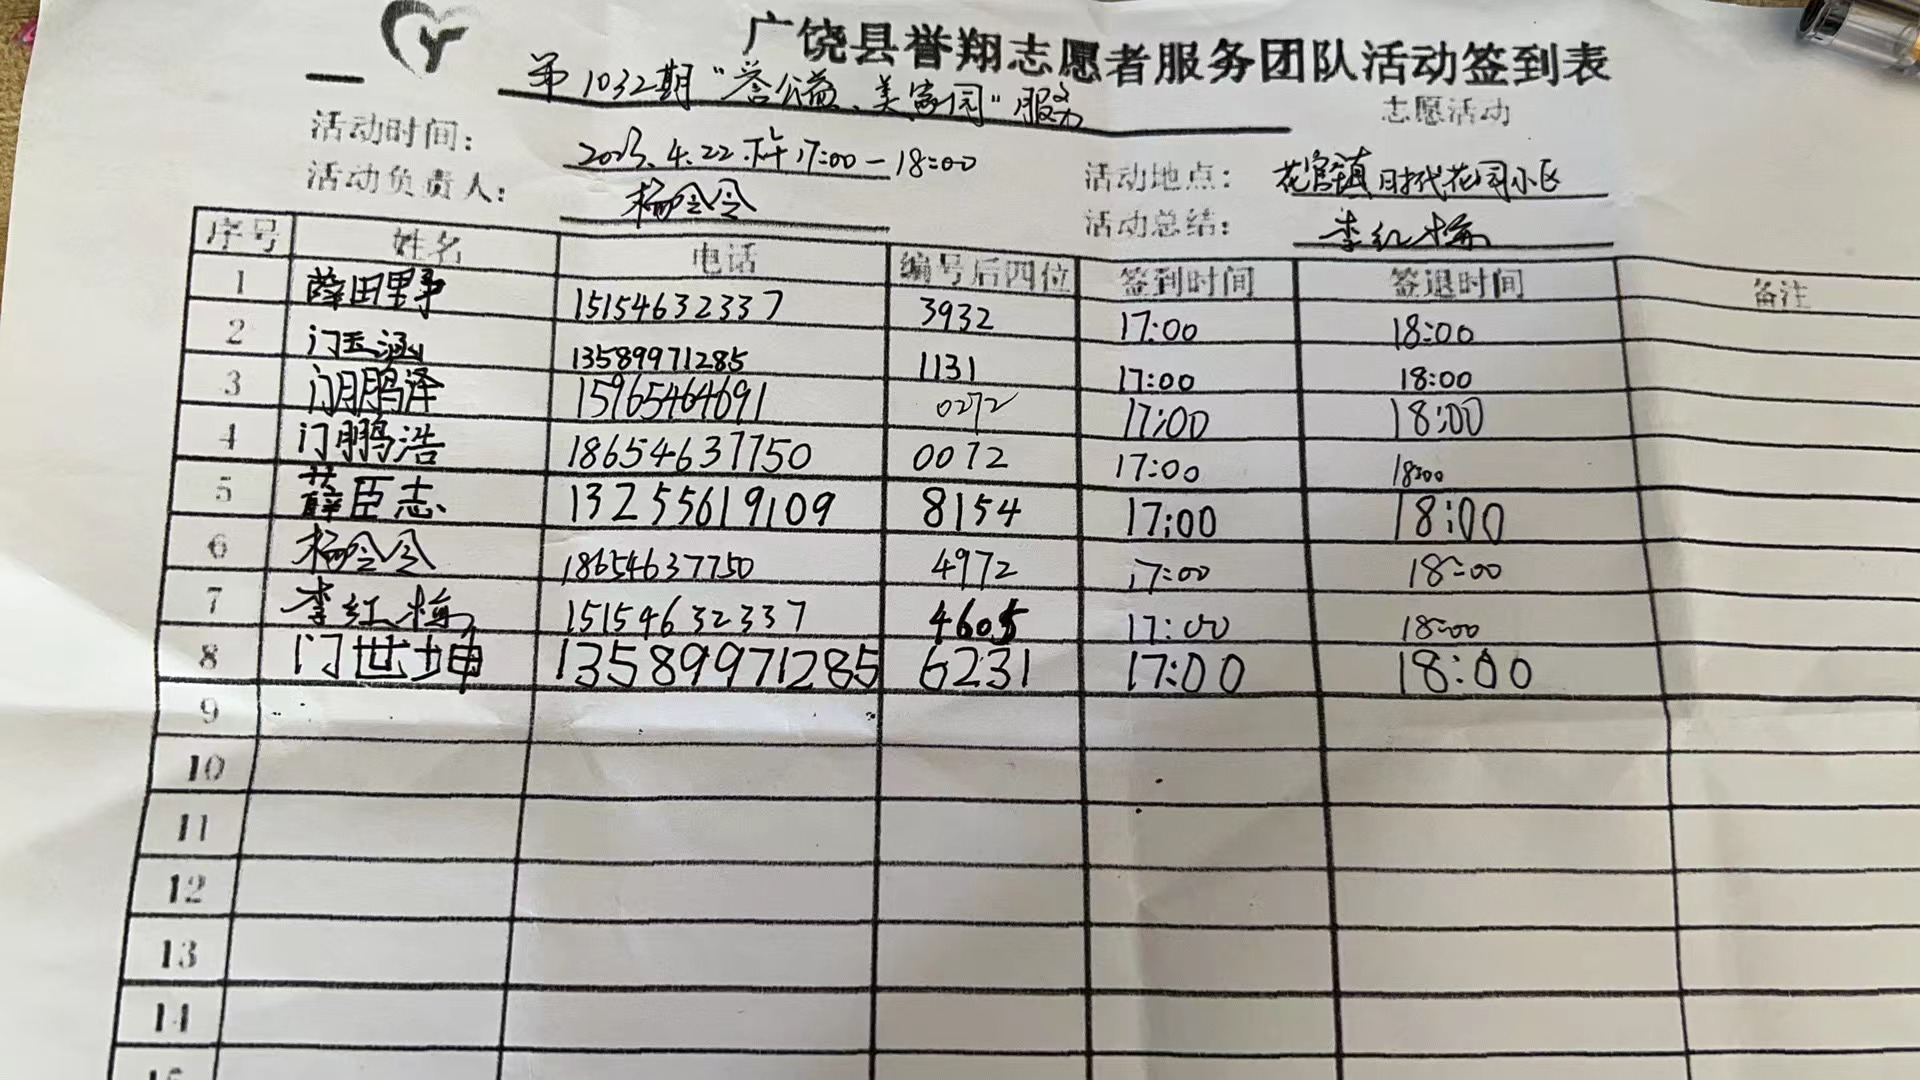 广饶县誉翔志愿者服务团队活动签到表
第1032期“誉公益、美家园”服务 志愿活动
活动时间: 2023.4.22 下午17:00-18:00 活动地点: 花官镇时代花园小区
活动负责人: 杨令令 活动总结: 李红梅
序号 姓名 电话 编号后四位 签到时间 签退时间 备注
1 薛田野 15154632337 3932 17:00 18:00
2 门玉涵 13589971285 1131 17:00 18:00
3 门鹏泽 15965464691 0272 17:00 18:00
4 门鹏浩 18654637750 0072 17:00 18:00
5 薛臣志 13255619109 8154 17:00 18:00
6 杨令令 18654637750 4972 17:00 18:00
7 李红梅 15154632337 4605 17:00 18:00
8 门世坤 13589971285 6231 17:00 18:00
9
10
11
12
13
14
15